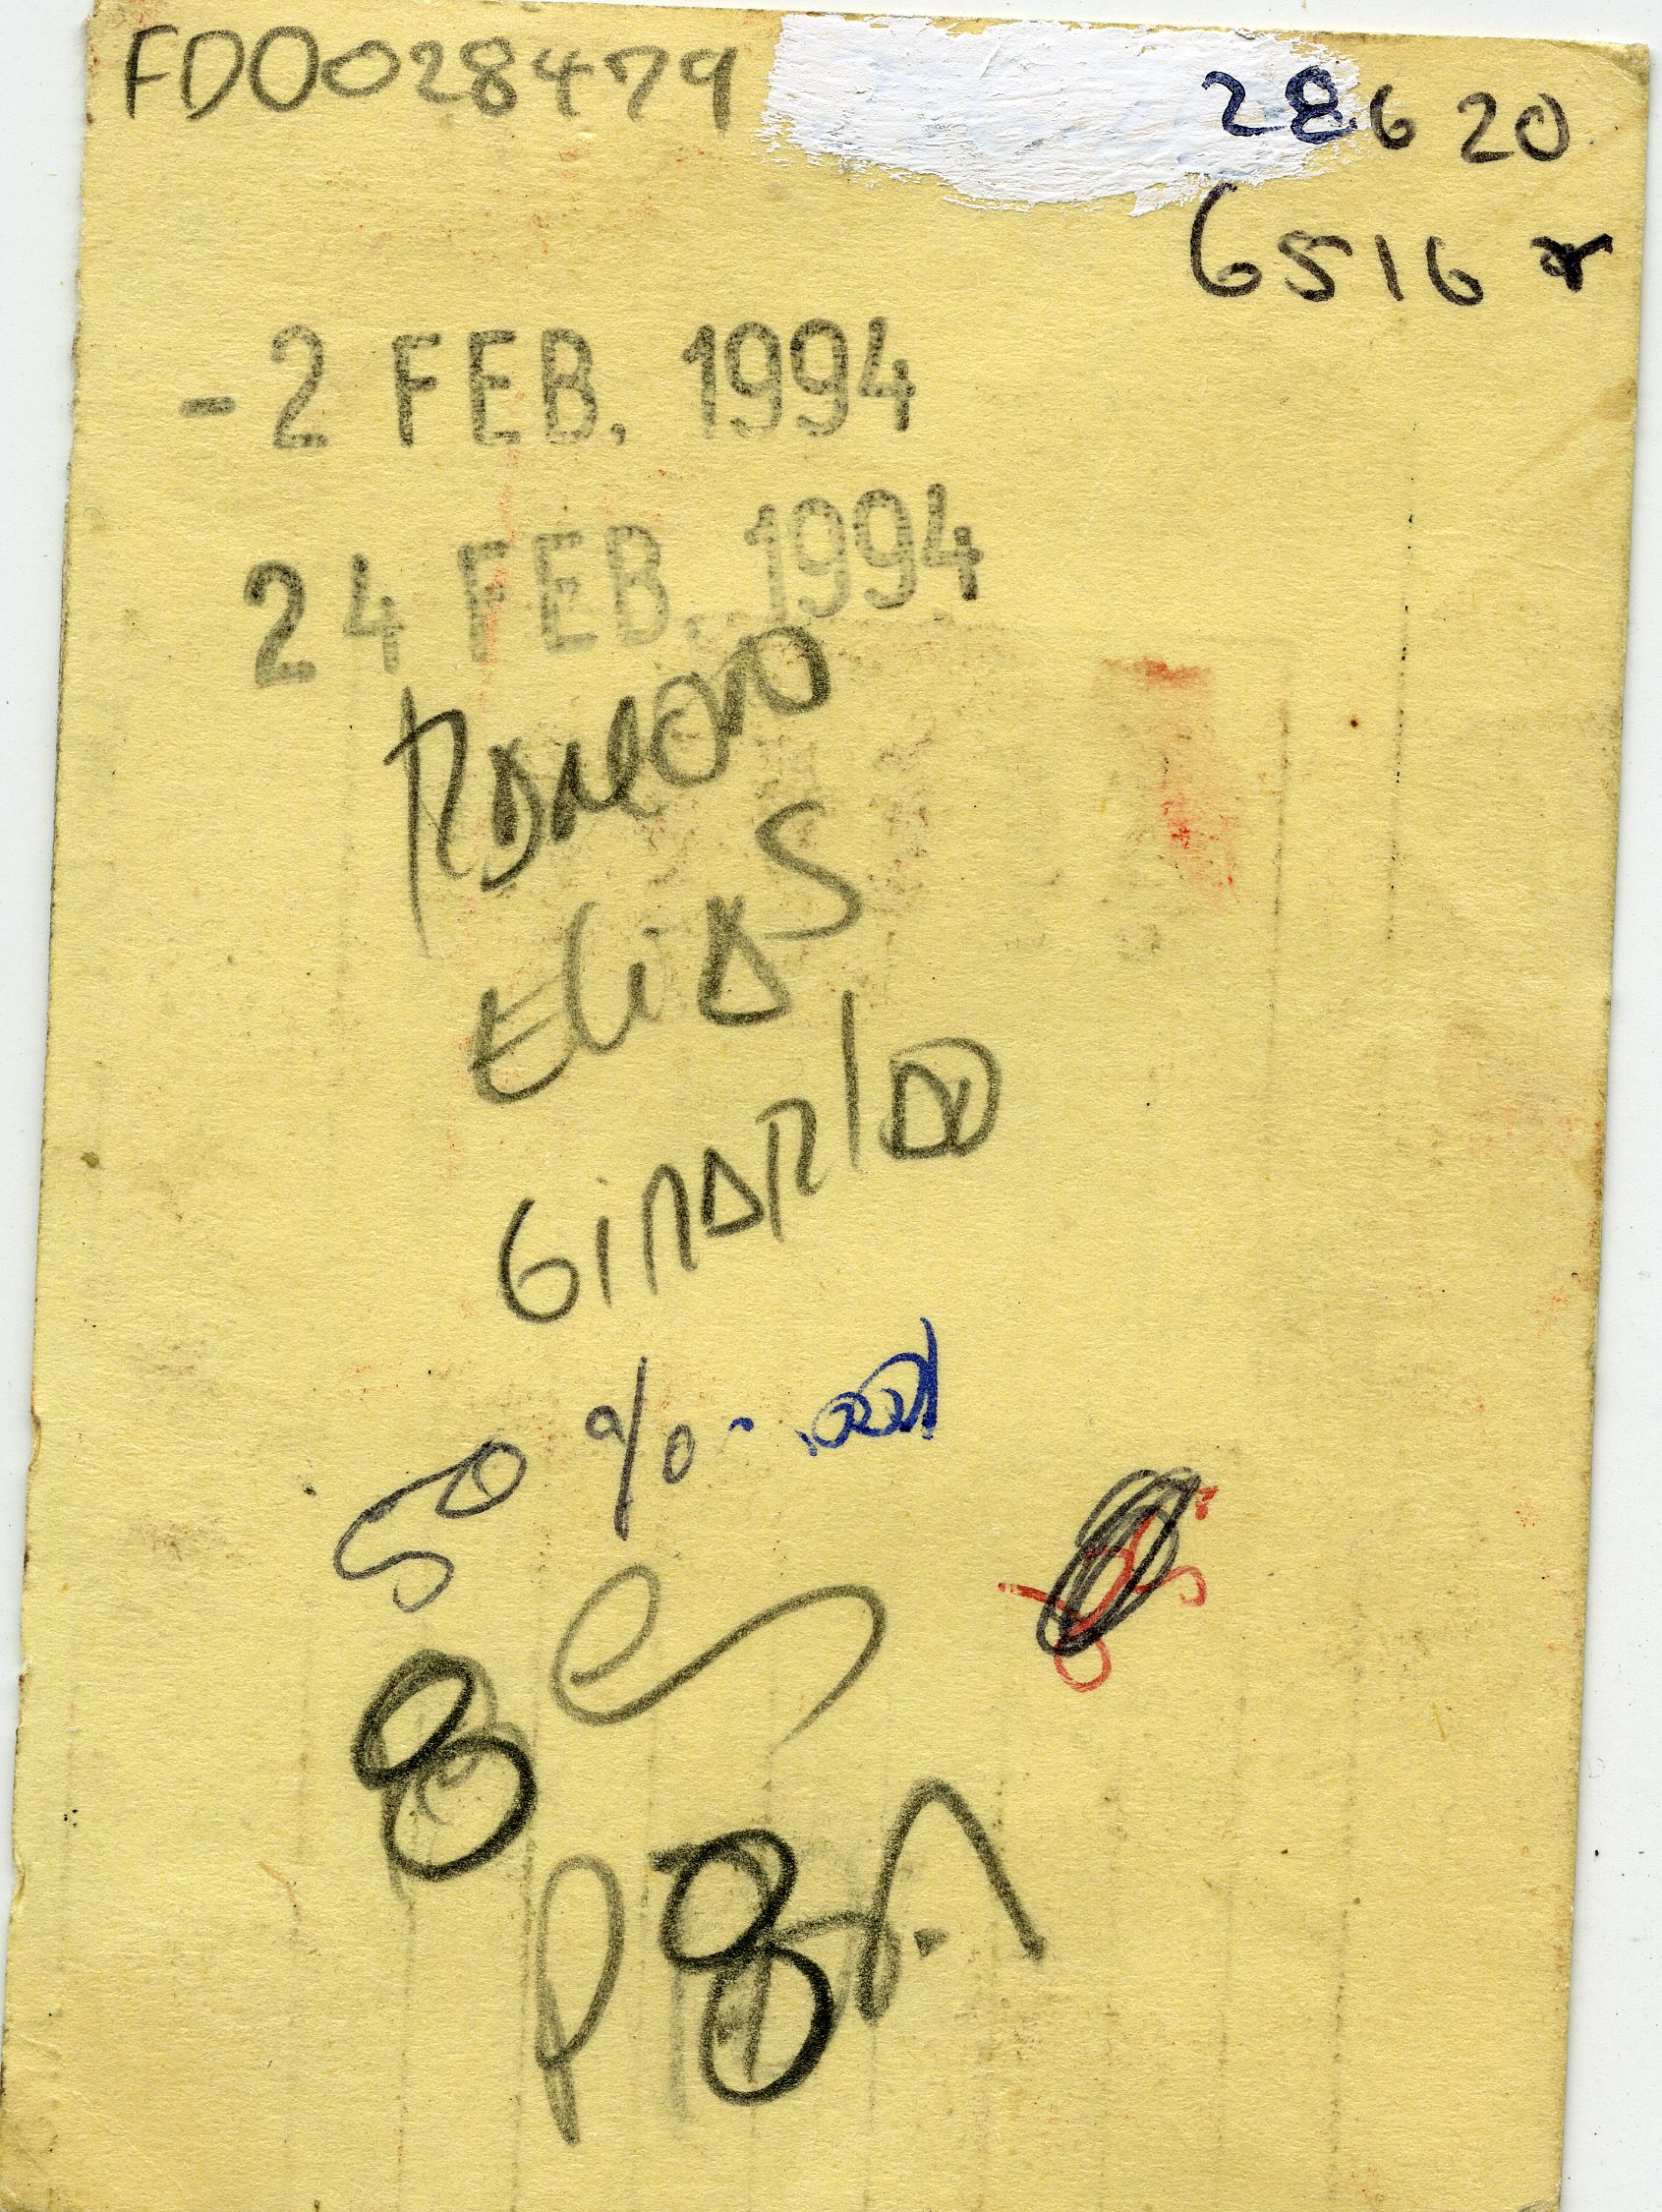 FD0028479
28620
6516
-2 FEB. 1994
24 FEB. 1994
ROMERO
ELiAS
GiRARldo
50 %
8
P8